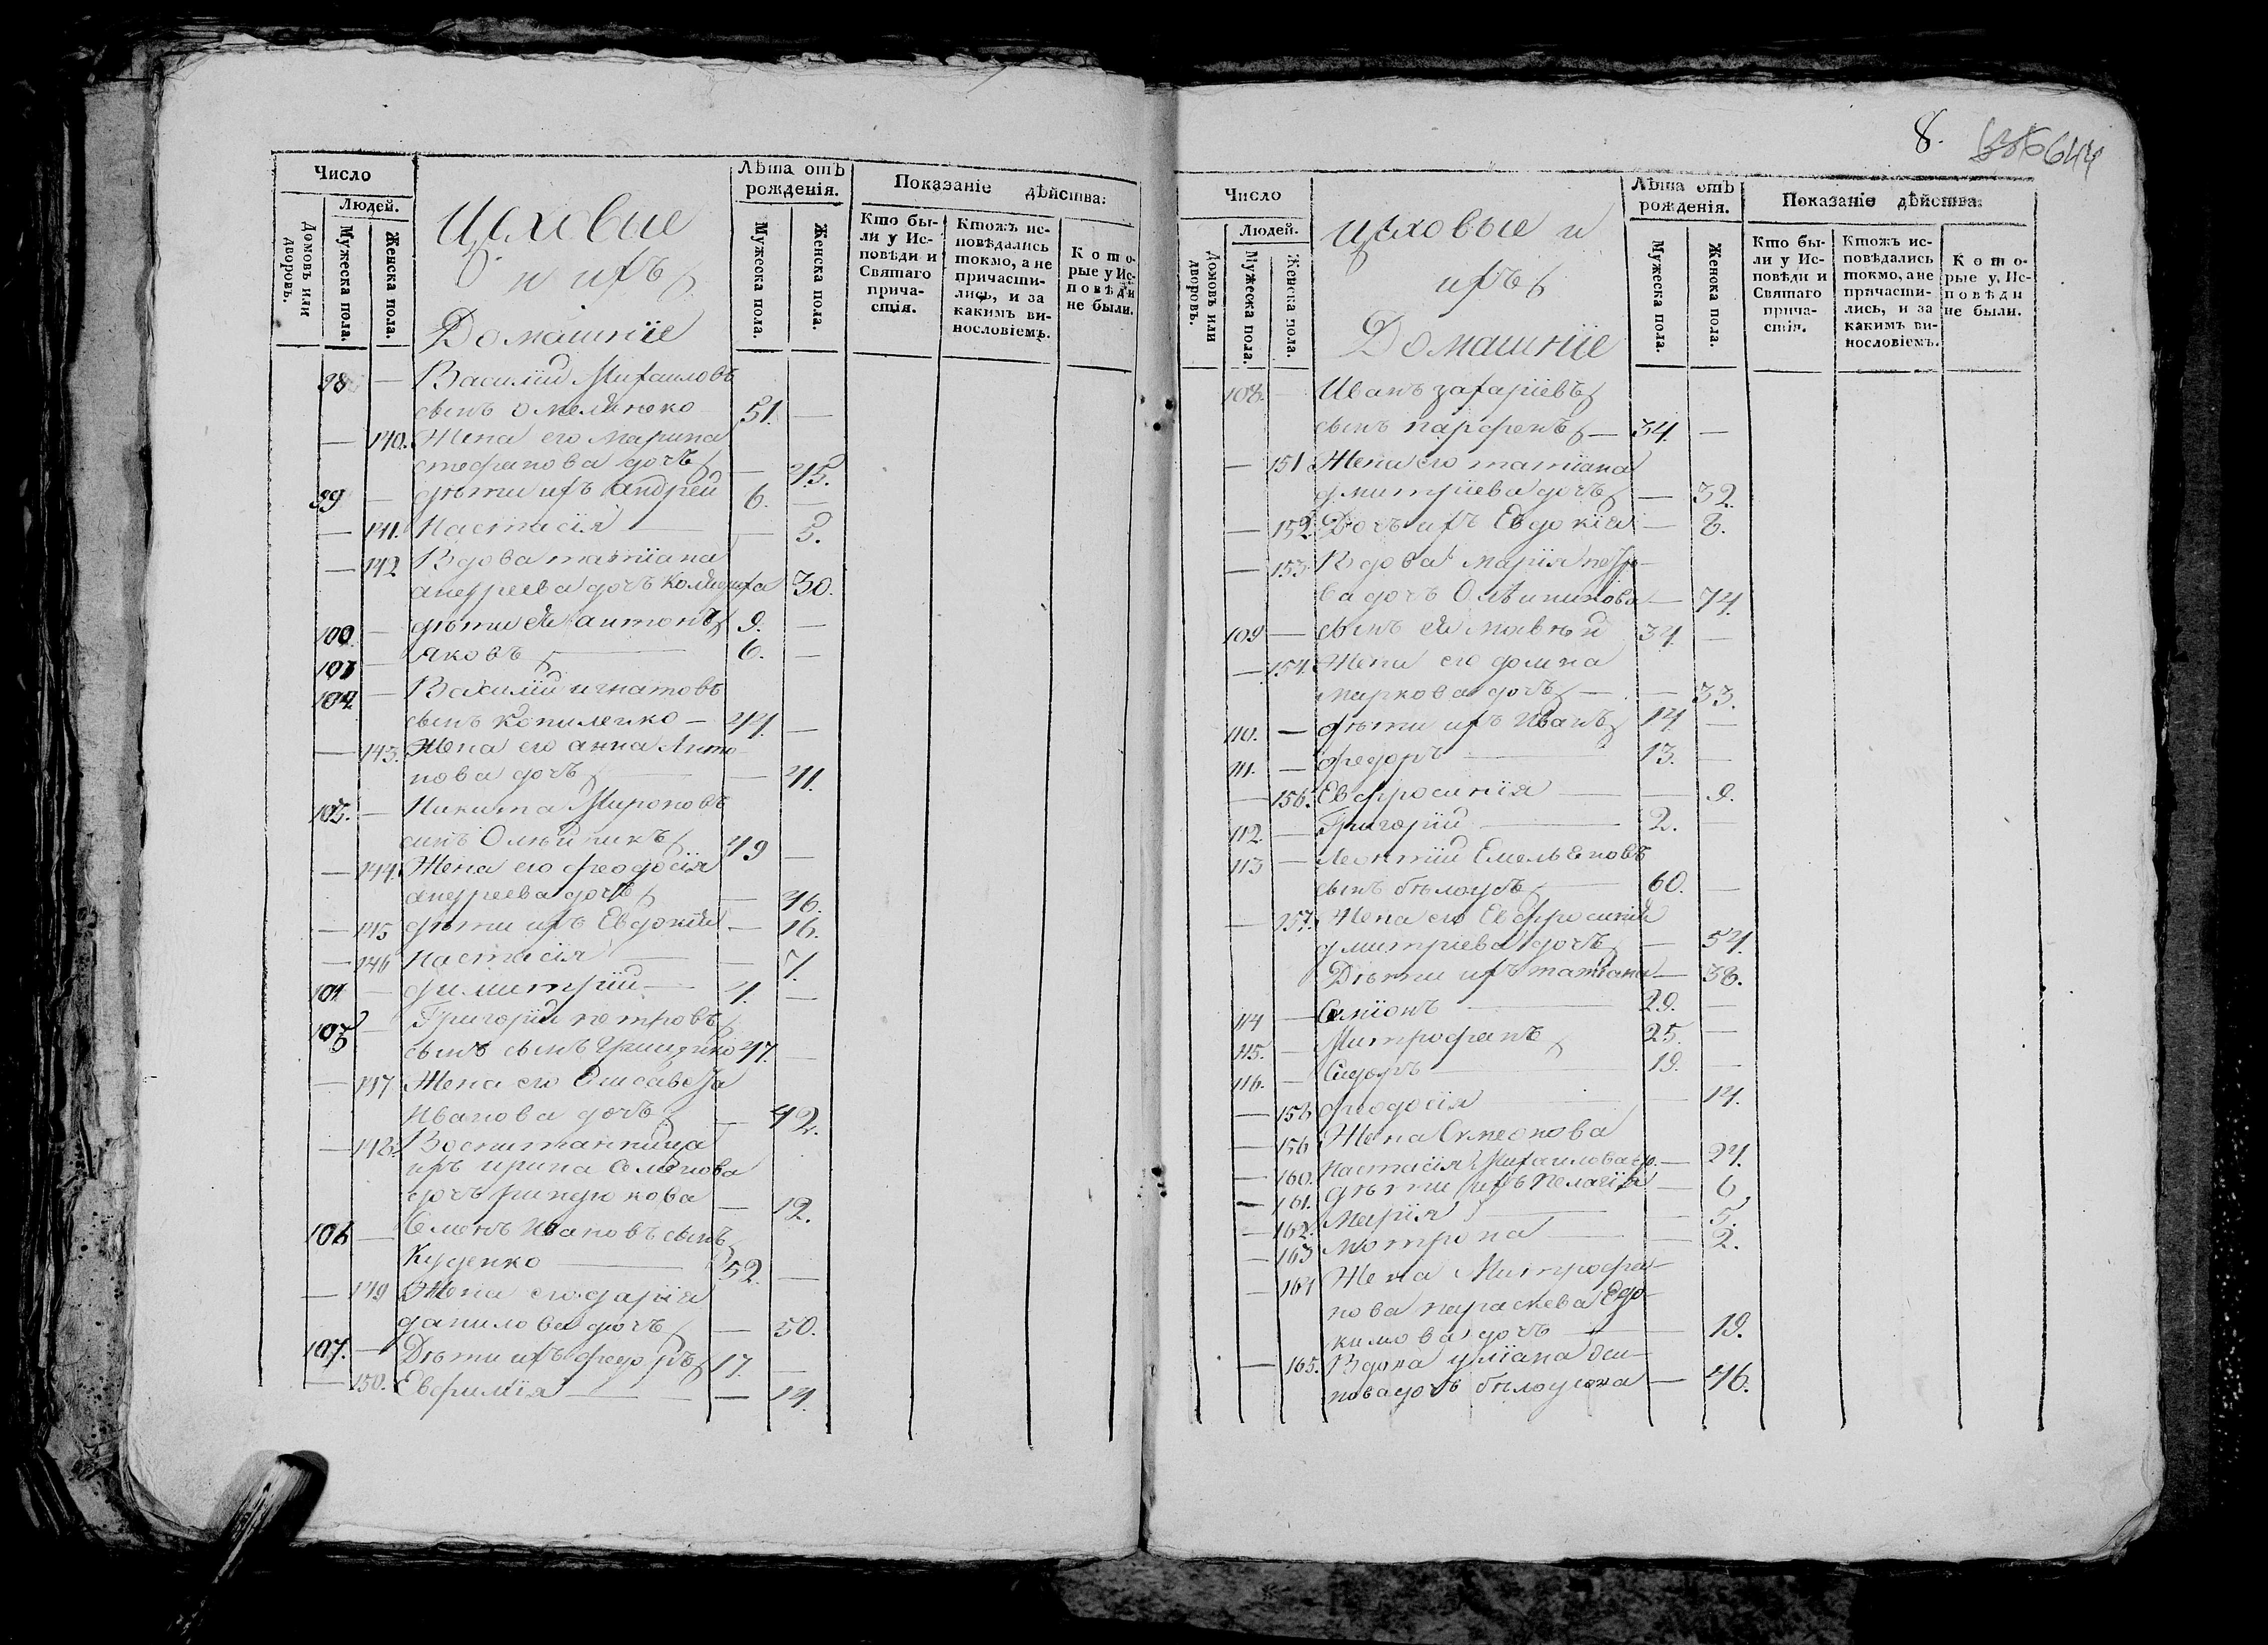 Число
Людей.
Домовъ или дворовъ.
Мужеска пола.
Женска пола.
Цѣховые
и ихъ
Домашніе
Лѣта отъ рожденія.
Мужеска пола.
Женска пола.
Показаніе дѣйства:
Кто бы-
ли у Ис-
повѣди и
Святаго
прича-
стія.
Ктожъ ис-
повѣдались
токмо, а не
причасти-
лись, и за
какимъ ви-
нословіемъ.
Кото-
рые у Ис-
повѣди
не были.
98 — Василій Михаиловъ
сынъ Омелянеко 51. —
— 140. Жена его марина
стефанова дочь — 45.
99 — дѣти ихъ андрей 6. —
— 141. Настасія — 3.
— 142 Вдова татіана
андреева дочь 30.
100 — дѣти ей антонъ 9. —
103 — яковъ 6. —
104 — Василій игнатовъ
сынъ копиленко — 44. —
— 143. Жена его анна Анто
нова дочь — 41.
105. — Никита Мироновъ
синъ Олѣйникъ 49 —
— 144. Жена его феодосія
андреева дочь — 46.
— 145 дѣти ихъ Евдокія — 16.
— 146 Настасія — 7.
104 — димитрій — 4. —
105 — Григорій петровъ
сынъ сынъ 47. —
— 147 Жена его Елисавета
Иванова дочь — 42.
— 148. Воспитанница
ихъ ирина Семенова
дочь — 12.
106 — Семенъ Ивановъ сынъ
Куценко 52. —
— 149 Жена его дарія
данилова дочь — 50.
107. — Дѣти ихъ федоръ 17. —
— 150. Евфимія — 14.
8.
644
Число
Людей.
Домовъ или дворовъ.
Мужеска пола.
Женска пола.
Цѣховые и
ихъ
Домашніе
Лѣта отъ рожденія.
Мужеска пола.
Женска пола.
Показаніе дѣйства:
Кто бы-
ли у Ис-
повѣди и
Святаго
прича-
стія.
Ктожъ ис-
повѣдались
токмо, а не
причасти-
лись, и за
какимъ ви-
нословіемъ.
Кото-
рые у Ис-
повѣди
не были.
108. — Иванъ захаріевъ
сынъ парфенъ — 34. —
— 151 Жена его татіана
дмитріева дочь — 32.
— 152. Дочь ихъ Евдокія — 8.
— 153. Вдова марія петро-
ва дочь Олѣиникова — 74.
109 — сынъ ей матвѣй 34. —
— 154. Жена его домна
маркова дочь — 33.
110. — дѣти ихъ Иванъ 14. —
111. — федоръ 13. —
— 156. Евфросинія — 9.
112. — Григорій 2. —
113 — Леонтій Емельеновъ
сынъ бѣлоусъ 60. —
— 157. Жена его Евфросинія
дмитріева дочь — 54.
Дѣти ихъ татіана — 38.
114 — Семіонъ 29. —
115. — Митрофанъ 25. —
116. — Сидоръ 19. —
— 158 феодосія — 14.
— 156 Жена Симеонова
— 160. Настасія Михаилова до. — 24.
— 161. дѣти ихъ Пелагія — 6
— 162. Марія — 5.
— 163 мотрона — 2.
— 164 Жена Митрофа-
нова параскева Едо-
кимова дочь — 19.
— 165. Вдова уліана Оси-
пова дочь бѣлоусова — 46.